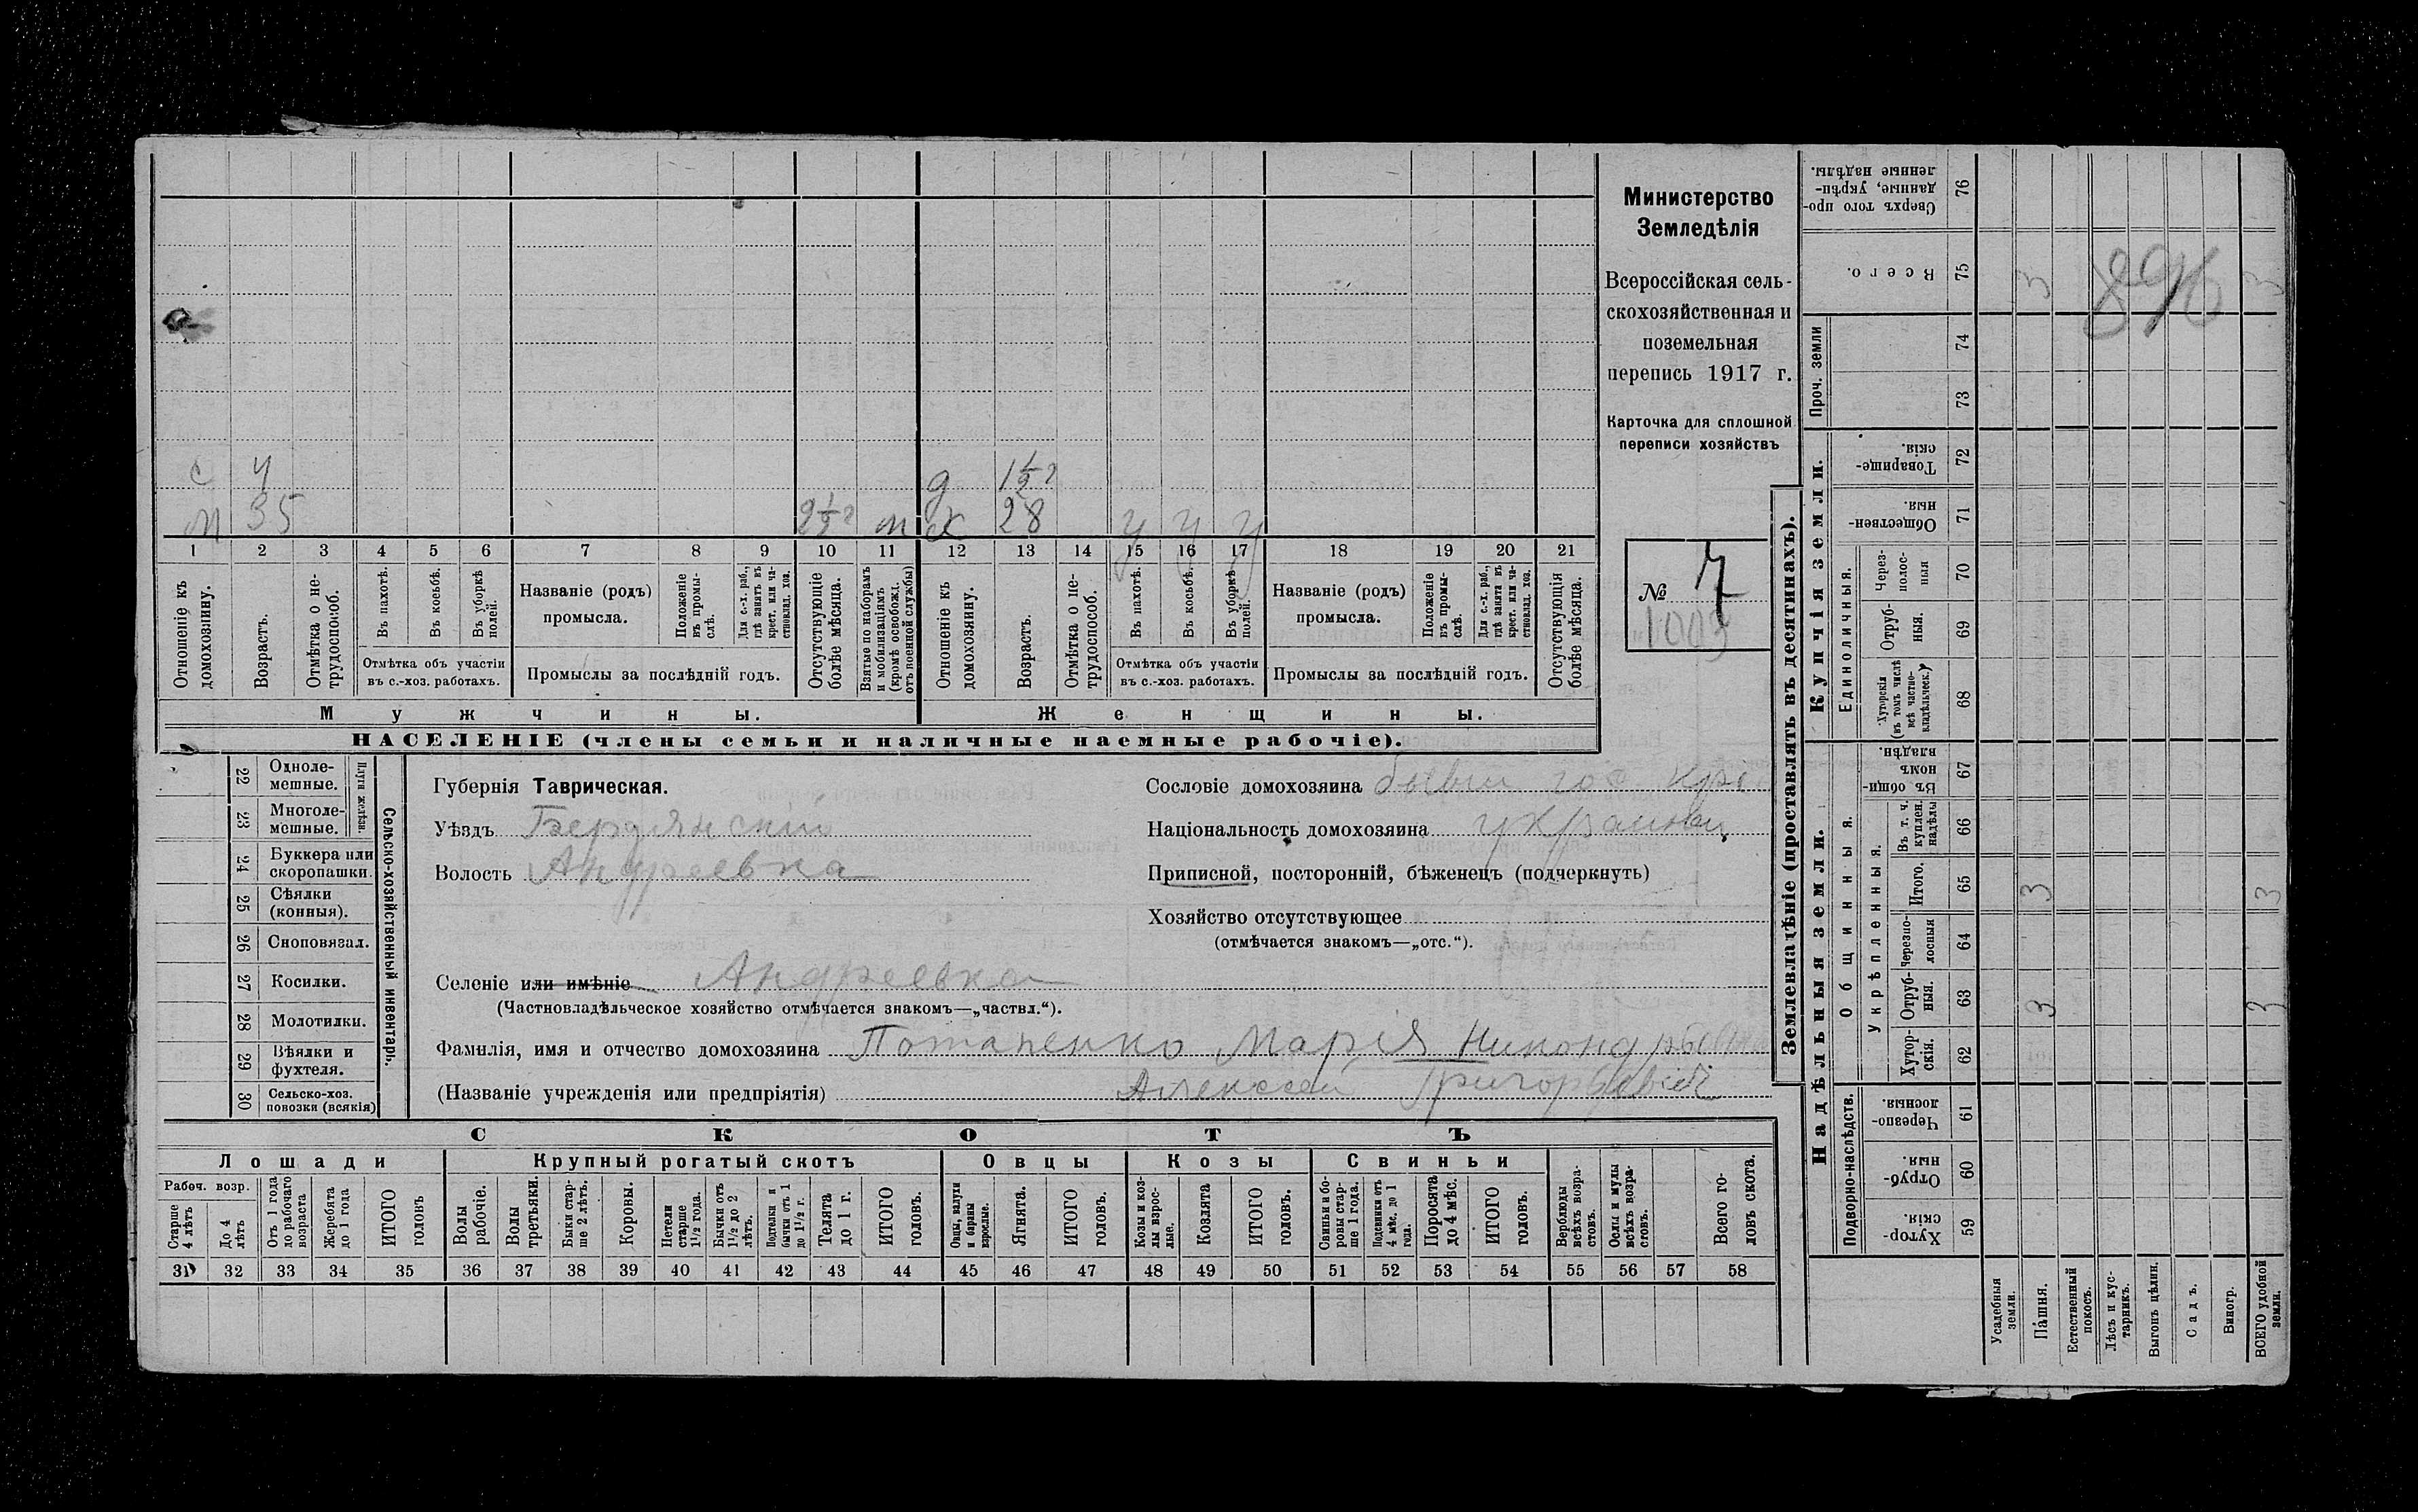 Министерство
Земледѣлія
Всероссійская сель-
скохозяйственная и
поземельная
перепись 1917 г.
Карточка для сплошной
переписи хозяйствъ
№ 7
1003
896
с 4 д 1½ г
м 35 2½ г м ж 28 у у у
1 2 3 4 5 6 7 8 9 10 11 12 13 14 15 16 17 18 19 20 21
Отношеніе къ домохозяину.
Возрастъ.
Отмѣтка о не-трудоспособ.
Въ пахотѣ.
Въ косьбѣ.
Въ уборкѣ полей.
Отмѣтка объ участіи
въ с.-хоз. работахъ.
Названіе (родъ)
промысла.
Положеніе въ промы-слѣ.
Для с.-х. раб., гдѣ занятъ въ крест. или ча-стновлад. хоз.
Промыслы за послѣдній годъ.
Отсутствующіе болѣе мѣсяца.
Взятые по наборамъ и мобилизаціямъ (кромѣ освобожд. отъ военной службы)
Отношеніе къ домохозяину.
Возрастъ.
Отмѣтка о не-трудоспособ.
Въ пахотѣ.
Въ косьбѣ.
Въ уборкѣ полей.
Отмѣтка объ участіи
въ с.-хоз. работахъ.
Названіе (родъ)
промысла.
Положеніе въ промы-слѣ.
Для с.-х. раб., гдѣ занята въ крест. или ча-стновлад. хоз.
Промыслы за послѣдній годъ.
Отсутствующія болѣе мѣсяца.
Мужчины. Женщины.
НАСЕЛЕНІЕ (члены семьи и наличные наемные рабочіе).
22 Одноле-мешные.
23 Многоле-мешные.
Плуги желѣзн.
24 Буккера или скоропашки.
25 Сѣялки (конныя).
26 Сноповязал.
27 Косилки.
28 Молотилки.
29 Вѣялки и фухтеля.
30 Сельско-хоз. повозки (всякія)
Сельско-хозяйственный инвентарь.
Губернія Таврическая.
Уѣздъ Бердянский
Волость Андреевка
Сословіе домохозяина бывш гос кре
Національность домохозяина украинец
Приписной, посторонній, бѣженецъ (подчеркнуть)
Хозяйство отсутствующее
(отмѣчается знакомъ—„отс.“).
Селеніе или имѣніе Андреевка
(Частновладѣльческое хозяйство отмѣчается знакомъ—„частвл.“).
Фамилія, имя и отчество домохозяина Потапенко Марія
(Названіе учрежденія или предпріятія) Алексей Григорьевич
СКОТЪ
Лошади Крупный рогатый скотъ Овцы Козы Свиньи
Рабоч. возр.
Старше 4 лѣтъ
До 4 лѣтъ
Отъ 1 года до рабочаго возраста
Жеребята до 1 года
ИТОГО головъ
Волы рабочіе.
Волы третьяки.
Быки стар-ше 2 лѣтъ.
Коровы.
Нетели старше 1½ года.
Бычки отъ 1½ до 2 лѣтъ.
Подтелки и бычки отъ 1 до 1½ г.
Телята до 1 г.
ИТОГО головъ.
Овцы, валухи и бараны взрослые.
Ягнята.
ИТОГО головъ.
Козы и коз-лы взрос-лые.
Козлята
ИТОГО головъ.
Свиньи и бо-ровы стар-ше 1 года.
Подсвинки отъ 4 мѣс. до 1 года.
Поросята до 4 мѣс.
ИТОГО головъ.
Верблюды всѣхъ возра-стовъ.
Ослы и мулы всѣхъ возра-стовъ.
Всего го-ловъ скота.
31 32 33 34 35 36 37 38 39 40 41 42 43 44 45 46 47 48 49 50 51 52 53 54 55 56 57 58
Землевладѣніе (проставлять въ десятинахъ).
Надѣльныя земли.
Купчія земли.
Проч. земли
Подворно-наслѣдств.
Общинныя.
Укрѣпленныя.
Единоличныя.
Сверхъ того про-данные, укрѣп-ленные надѣлы. 76
Всего. 75 3 3
74
73
Товарище-скія. 72
Обществен-ныя. 71
Через-полос-ныя 70
Отруб-ныя. 69
Хуторскія (въ томъ числѣ всѣ частно-владѣльческ.) 68
Въ общи-номъ владѣн. 67
Въ т. ч. куплен. надѣлы 66
Итого. 65 3 3
Черезпо-лосныя 64
Отруб-ныя. 63 3 3
Хутор-скія. 62
Черезпо-лосныя. 61
Отруб-ныя. 60
Хутор-скія. 59
Усадебныя земли.
Пашня.
Естественный покосъ.
Лѣсъ и кус-тарникъ.
Выгонъ цѣлин.
Садъ.
Виногр.
ВСЕГО удобной земли.